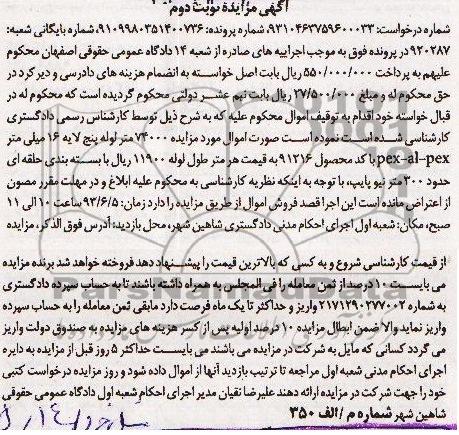 آگهی مزایده نوبت دوم
شماره درخواست: ۹۳۱۰۴۶۳۷۵۹۶۰۰۰۳۳، شماره پرونده: ۹۱۰۹۹۸۰۳۵۱۴۰۰۷۳۶، شماره بایگانی شعبه:
۹۲۰۲۸۷ در پرونده فوق به موجب اجراییه های صادره از شعبه ۱۴ دادگاه عمومی حقوقی اصفهان محکوم
علیهم به پرداخت ۵۵۰/۰۰۰/۰۰۰ ریال بابت اصل خواسته به انضمام هزینه های دادرسی و دیر کرد در
حق محکوم له و مبلغ ۲۷/۵۰۰/۰۰۰ ریال بابت نیم عشر دولتی محکوم گردیده است که محکوم له در
قبال خواسته خود اقدام به توقیف اموال محکوم علیه که به شرح ذیل توسط کارشناس رسمی دادگستری
کارشناسی شده است نموده است صورت اموال مورد مزایده ۷۴۰۰۰ متر لوله پنج لایه ۱۶ میلی متر
pex-al-pex با کد محصول ۹۱۲۱۶ به قیمت هر متر طول لوله ۱۱۹۰۰ ریال با بسته بندی حلقه ای
حدود ۳۰۰ متر نیو پایپ، با توجه به اینکه نظریه کارشناسی به محکوم علیه ابلاغ و در مهلت مقرر مصون
از اعتراض مانده است این اجرا قصد فروش اموال از طریق مزایده را دارد زمان: ۹۳/۶/۵ ساعت ۱۰ الی ۱۱
صبح، مکان: شعبه اول اجرای احکام مدنی دادگستری شاهین شهر، محل بازدید: آدرس فوق الذکر، مزایده
از قیمت کارشناسی شروع و به کسی که بالاترین قیمت را پیشنهاد دهد فروخته خواهد شد برنده مزایده
می بایست ۱۰ درصد از ثمن معامله را فی المجلس به همراه داشته باشند تا به حساب سپرده دادگستری
به شماره ۲۱۷۱۲۹۰۲۷۷۰۰۲ واریز و حداکثر تا یک ماه فرصت دارد مابقی ثمن معامله را به حساب سپرده
واریز نماید والا ضمن ابطال مزایده ۱۰ درصد اولیه پس از کسر هزینه های مزایده به صندوق دولت واریز
می گردد کسانی که مایل به شرکت در مزایده می باشند می بایست حداکثر ۵ روز قبل از مزایده به دایره
اجرای احکام مدنی شعبه اول مراجعه تا ترتیب بازدید آنها از اموال داده شود و روز مزایده درخواست کتبی
خود را جهت شرکت در مزایده ارائه دهند علیرضا نقیان مدیر اجرای احکام شعبه اول دادگاه عمومی حقوقی
شاهین شهر شماره م/الف ۳۵۰